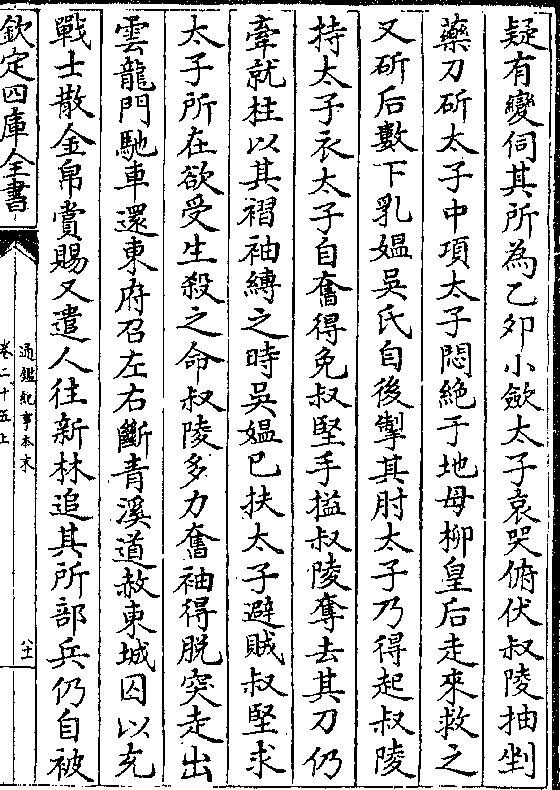 疑有變伺其所為乙夘小斂太子哀哭俯伏叔陵抽剉
藥刀斫太子中項太子悶絶于地母柳皇后走來救之
又斫后數下乳媪吳氏自後掣其肘太子乃得起叔陵
持太子衣太子自奮得免叔堅手搤叔陵奪去其刀仍
牽就柱以其褶袖縛之時吳媪已扶太子避賊叔堅求
太子所在欲受生殺之命叔陵多力奮袖得脱突走出
雲龍門馳車還東府召左右斷青溪道赦東城囚以充
戰士散金帛賞賜又遣人往新林追其所部兵仍自被
欽定四庫全書
通鑑紀事本末
卷二十五上